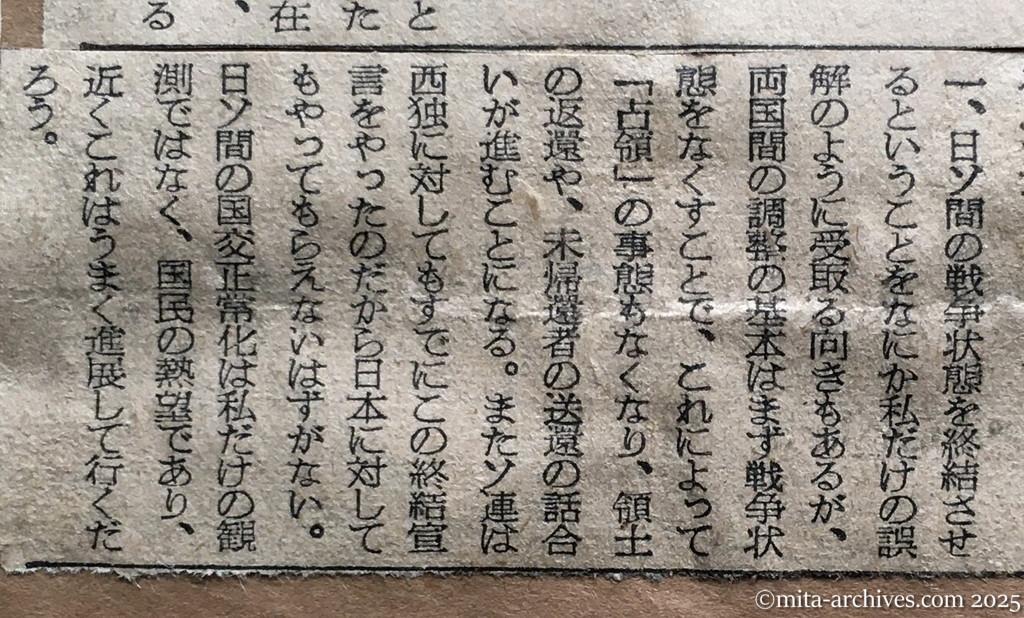 と
た
在
、
る
一、日ソ間の戦争状態を終結させ
るということをなにか私だけの誤
解のように受取る向きもあるが、
両国間の調整の基本はまず戦争状
態をなくすことで、これによって
「占領」の事態もなくなり、領土
の返還や、未帰還者の送還の話合
いが進むことになる。またソ連は
西独に対してもすでにこの終結宣
言をやったのだから日本に対して
もやってもらえないはずがない。
日ソ間の国交正常化は私だけの観
測ではなく、国民の熱望であり、
近くこれはうまく進展して行くだ
ろう。
©mita-archives.com 2025